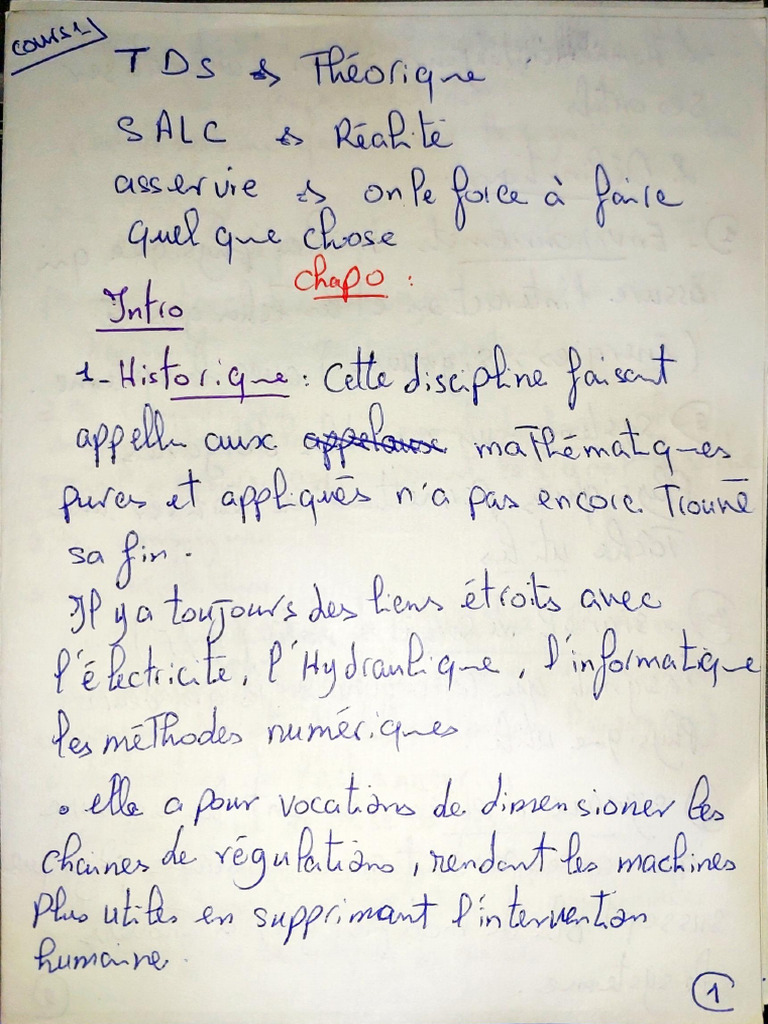 cours 1
TDS → Théorique
SALC → Réalité
asservie → on le force à faire
quel que chose
chap0 :
Intro
1-Historique : Cette discipline faisant
appelle aux appelaux mathématiques
pures et appliqués n'a pas encore trouvé
sa fin.
Il y a toujours des liens étroits avec
l'électricité, l'Hydraulique, l'informatique
les méthodes numériques
• elle a pour vocations de dimensioner les
chaines de régulations, rendant les machines
plus utiles en supprimant l'intervention
humaine.
1